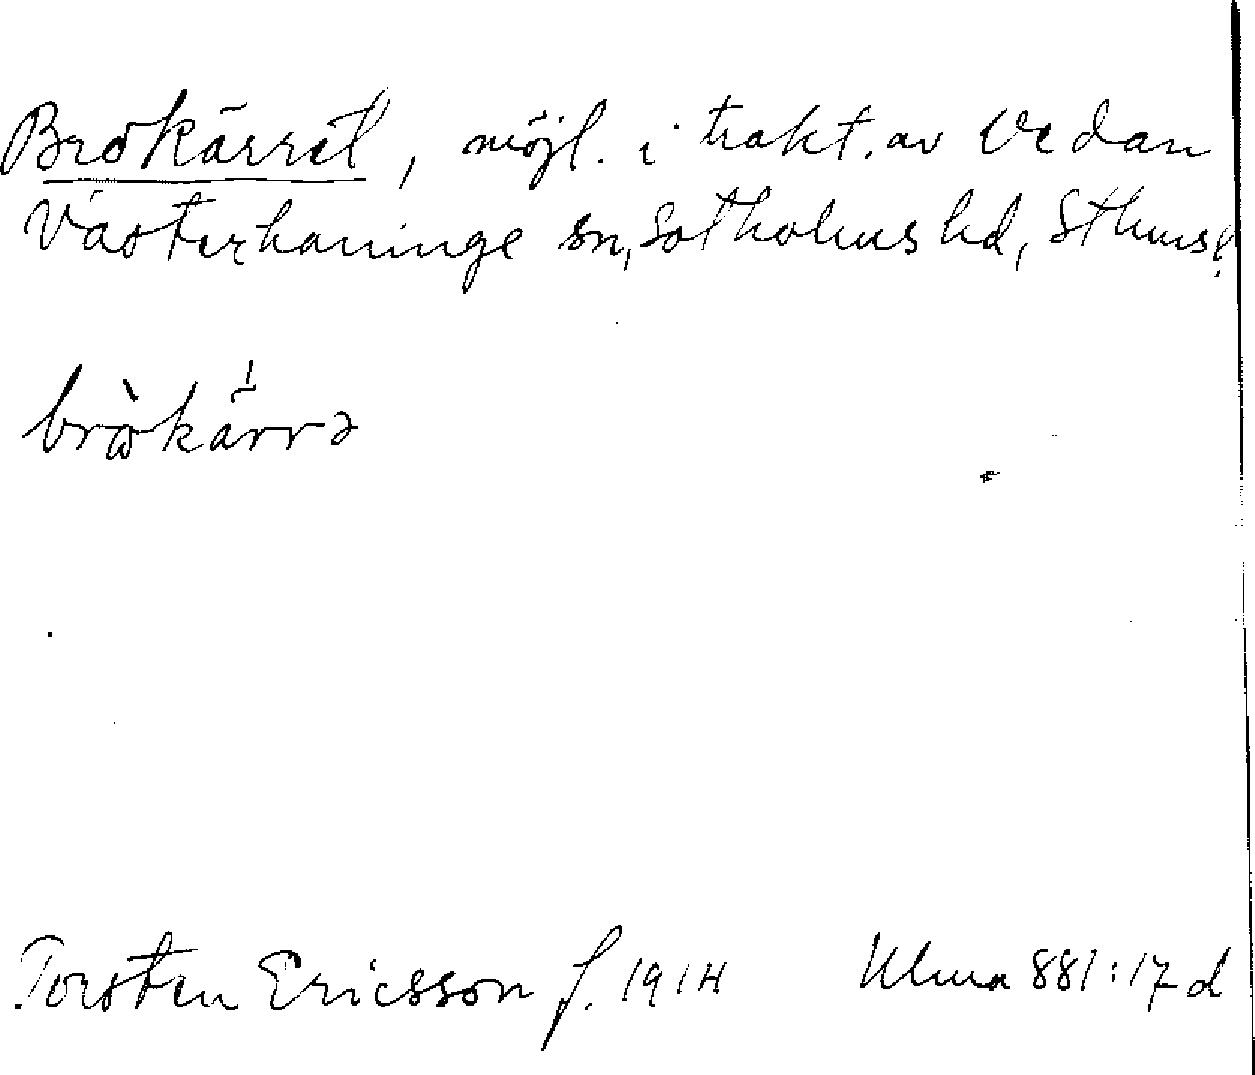 Brokärret, möjl. i trakt. av Vedan
Västerhaninge sn, Sotholms hd, Sthms l.
bròkä́rrə
Torsten Ericsson f. 1914 Ulma 881:17 d